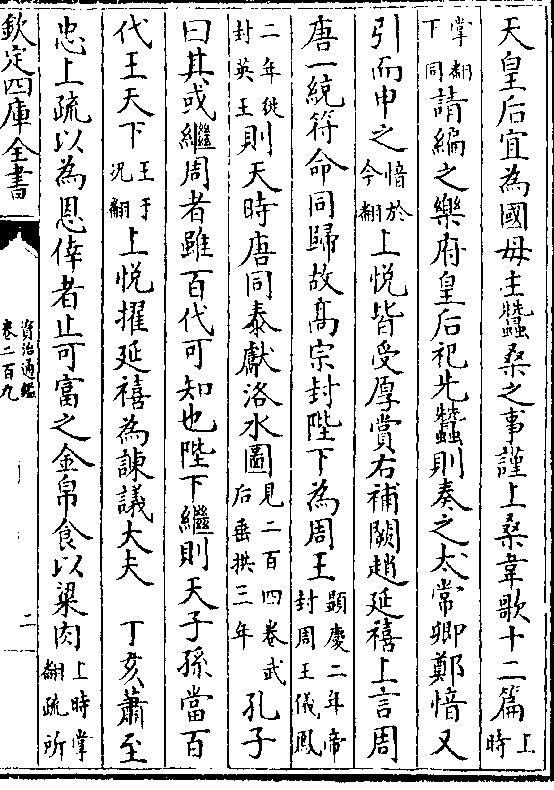 天皇后宜為國母主蠶桑之事謹上桑韋歌十二篇上時
掌翻下同請編之樂府皇后祀先蠶則奏之太常卿鄭愔又
引而申之愔於今翻上悅皆受厚賞右補闕趙延禧上言周
唐一統符命同歸故髙宗封陛下為周王顯慶二年帝封周王儀鳯
二年徙封英王則天時唐同泰獻洛水圖見二百四卷武后垂拱三年孔子
曰其或繼周者雖百代可知也陛下繼則天子孫當百
代王天下王于況翻上悅擢延禧為諫議大夫　丁亥蕭至
忠上疏以為恩倖者止可富之金帛食以粱肉上時掌翻疏所
欽定四庫全書
資治通鑑
卷二百九
二